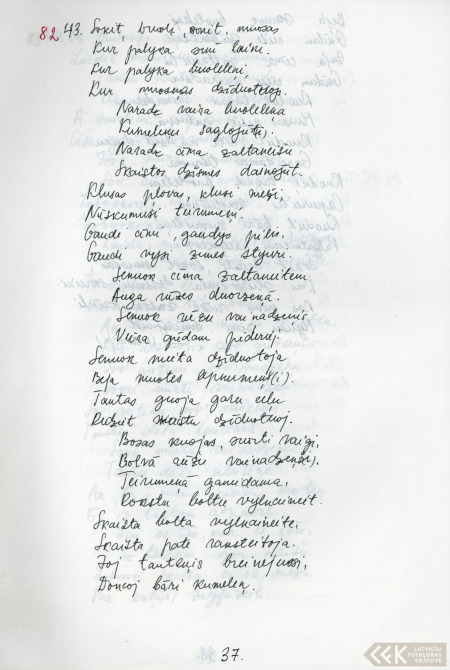 82 43. Sokit, bruoli, sokit, muosas
Kur palyka simi laiki.
Kur palyka bruoleleņi,
Kur muosiņas dzīduotojs.
Naradz vaira bruoleleņa
Kumeleņu saglojūt(i).
Naradz cīma zaltaneišu
Skaistos dzīsmes dainojūt.
Klusas plovas, klusi meži,
Nūskumuši teirumeņi.
Gaudi cīmi, gaudys pilis,
Gaudi vysi zemes styuri.
Senuok cīma zaltaneitem
Auga rūzes duorzeņā.
Senuok rūžu vainadzenis
Vuira golvom pidereji.
Senuok meita dzīduotoja
Beja muotes lepnumeņš(i).
Tautas guoja garu ceļu
Redzēt skaistu dzīduotuoj.
Bosas kuojas, sorti vaigi,
Bolvā rūžu vainadzeņš(i).
Teirumeņā ganeidama,
Rokstu boltu vylnaineit.
Skaista bolta vylnaineite,
Skaista pate raksteitoja.
Joj tauteņis breinejuos(i),
Doncoj bāri kumeleņ.
37.
LATVIEŠU
FOLKLORAS
KRĀTUVE